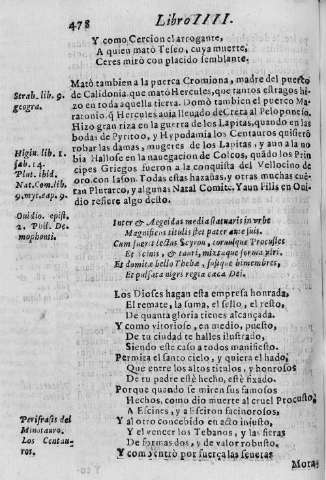 478
Libro IIII.
Y como Cercion el arrogante,
A quien mató Teseo, cuya muerte,
Ceres mirò con placido semblante.
Mató tambien a la puerca Cromiona, madre del puerco
de Calidonia que mató Hercules, que tantos estragos hi-
zo en toda aquella tierra. Domò tambien el puerco Ma-
ratonio, q̃ Hercules auia lleuado de Creta al Peloponeso.
Hizo gran riza en la guerra de los Lapitas, quando en las
bodas de Pyritoo, y Hypudamia los Centauros quisierõ
robar las damas, mugeres de los Lapitas, y aun a la no
bia Hallose en la nauegacion de Colcos, quãdo los Prin
cipes Griegos fueron a la conquista del Vellocino de
oro con Iason. Todas estas hazañas, y otras muchas cuẽ-
tan Plutarco, y algunas Natal Comite. Y aun Filis en Oui
dio refiere algo desto.
Strab. lib. 9.
geogra.
Higin. lib. 1.
fab. 14.
Plut. ibid.
Nat. Com. lib.
9. myt. cap. 9.
Ouidio. epist.
2. Phil. De-
mophonti.
Inter & Aegeidas media statuaris in vrbe
Magnificus titulis stet pater ante suis.
Cum fuerit lectus Scyron, toruusque Procustes
Et Scinis, & tauri, mixtaque forma viri.
Et domitæ bello Thebæ, fusique bimembres,
Et pulsata nigri regia cæca Dei.
Los Dioses hagan esta empresa honrada,
El remate, la suma, el sello, el resto,
De quanta gloria tienes alcançada.
Y como vitorioso, en medio, puesto,
De tu ciudad te halles ilustrado,
Siendo este caso a todos manifiesto.
Permita el santo cielo, y quiera el hado,
Que entre los altos titulos, y honrosos
De tu padre estè hecho, estè fixado.
Porque quando se miren sus famosos
Hechos, como dio muerte al cruel Procusto,
A Escines, y a Esciron facinorosos,
Y al otro concebido en acto injusto,
Y el vencer los Tebanos, y las fieras
De formas dos, y de valor robusto.
Y como entrò por fuerça las seueras
Perifrasis del
Minotauro.
Los Centau-
ros.
Mora-